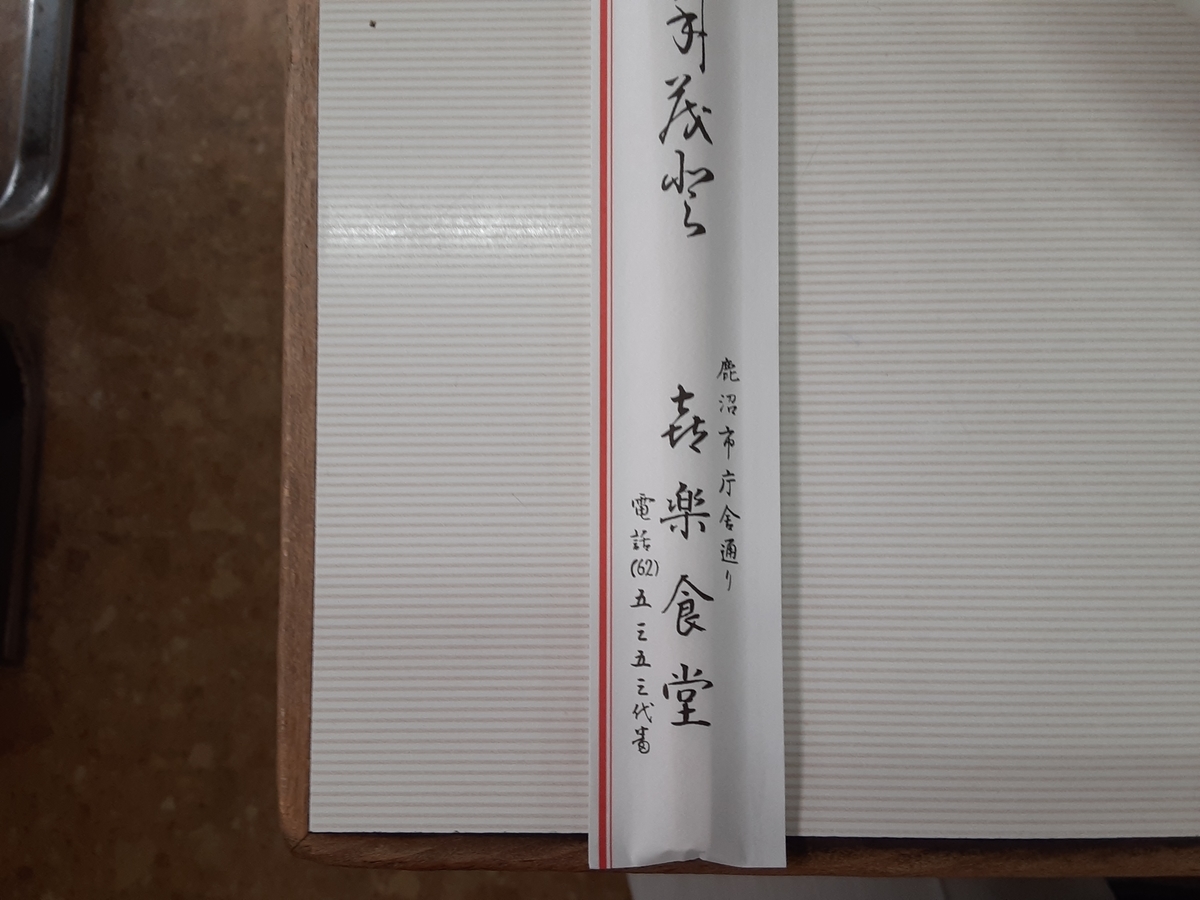 茂登
鹿沼市庁舎通り
㐂楽食堂
電話(62)五三五三代番